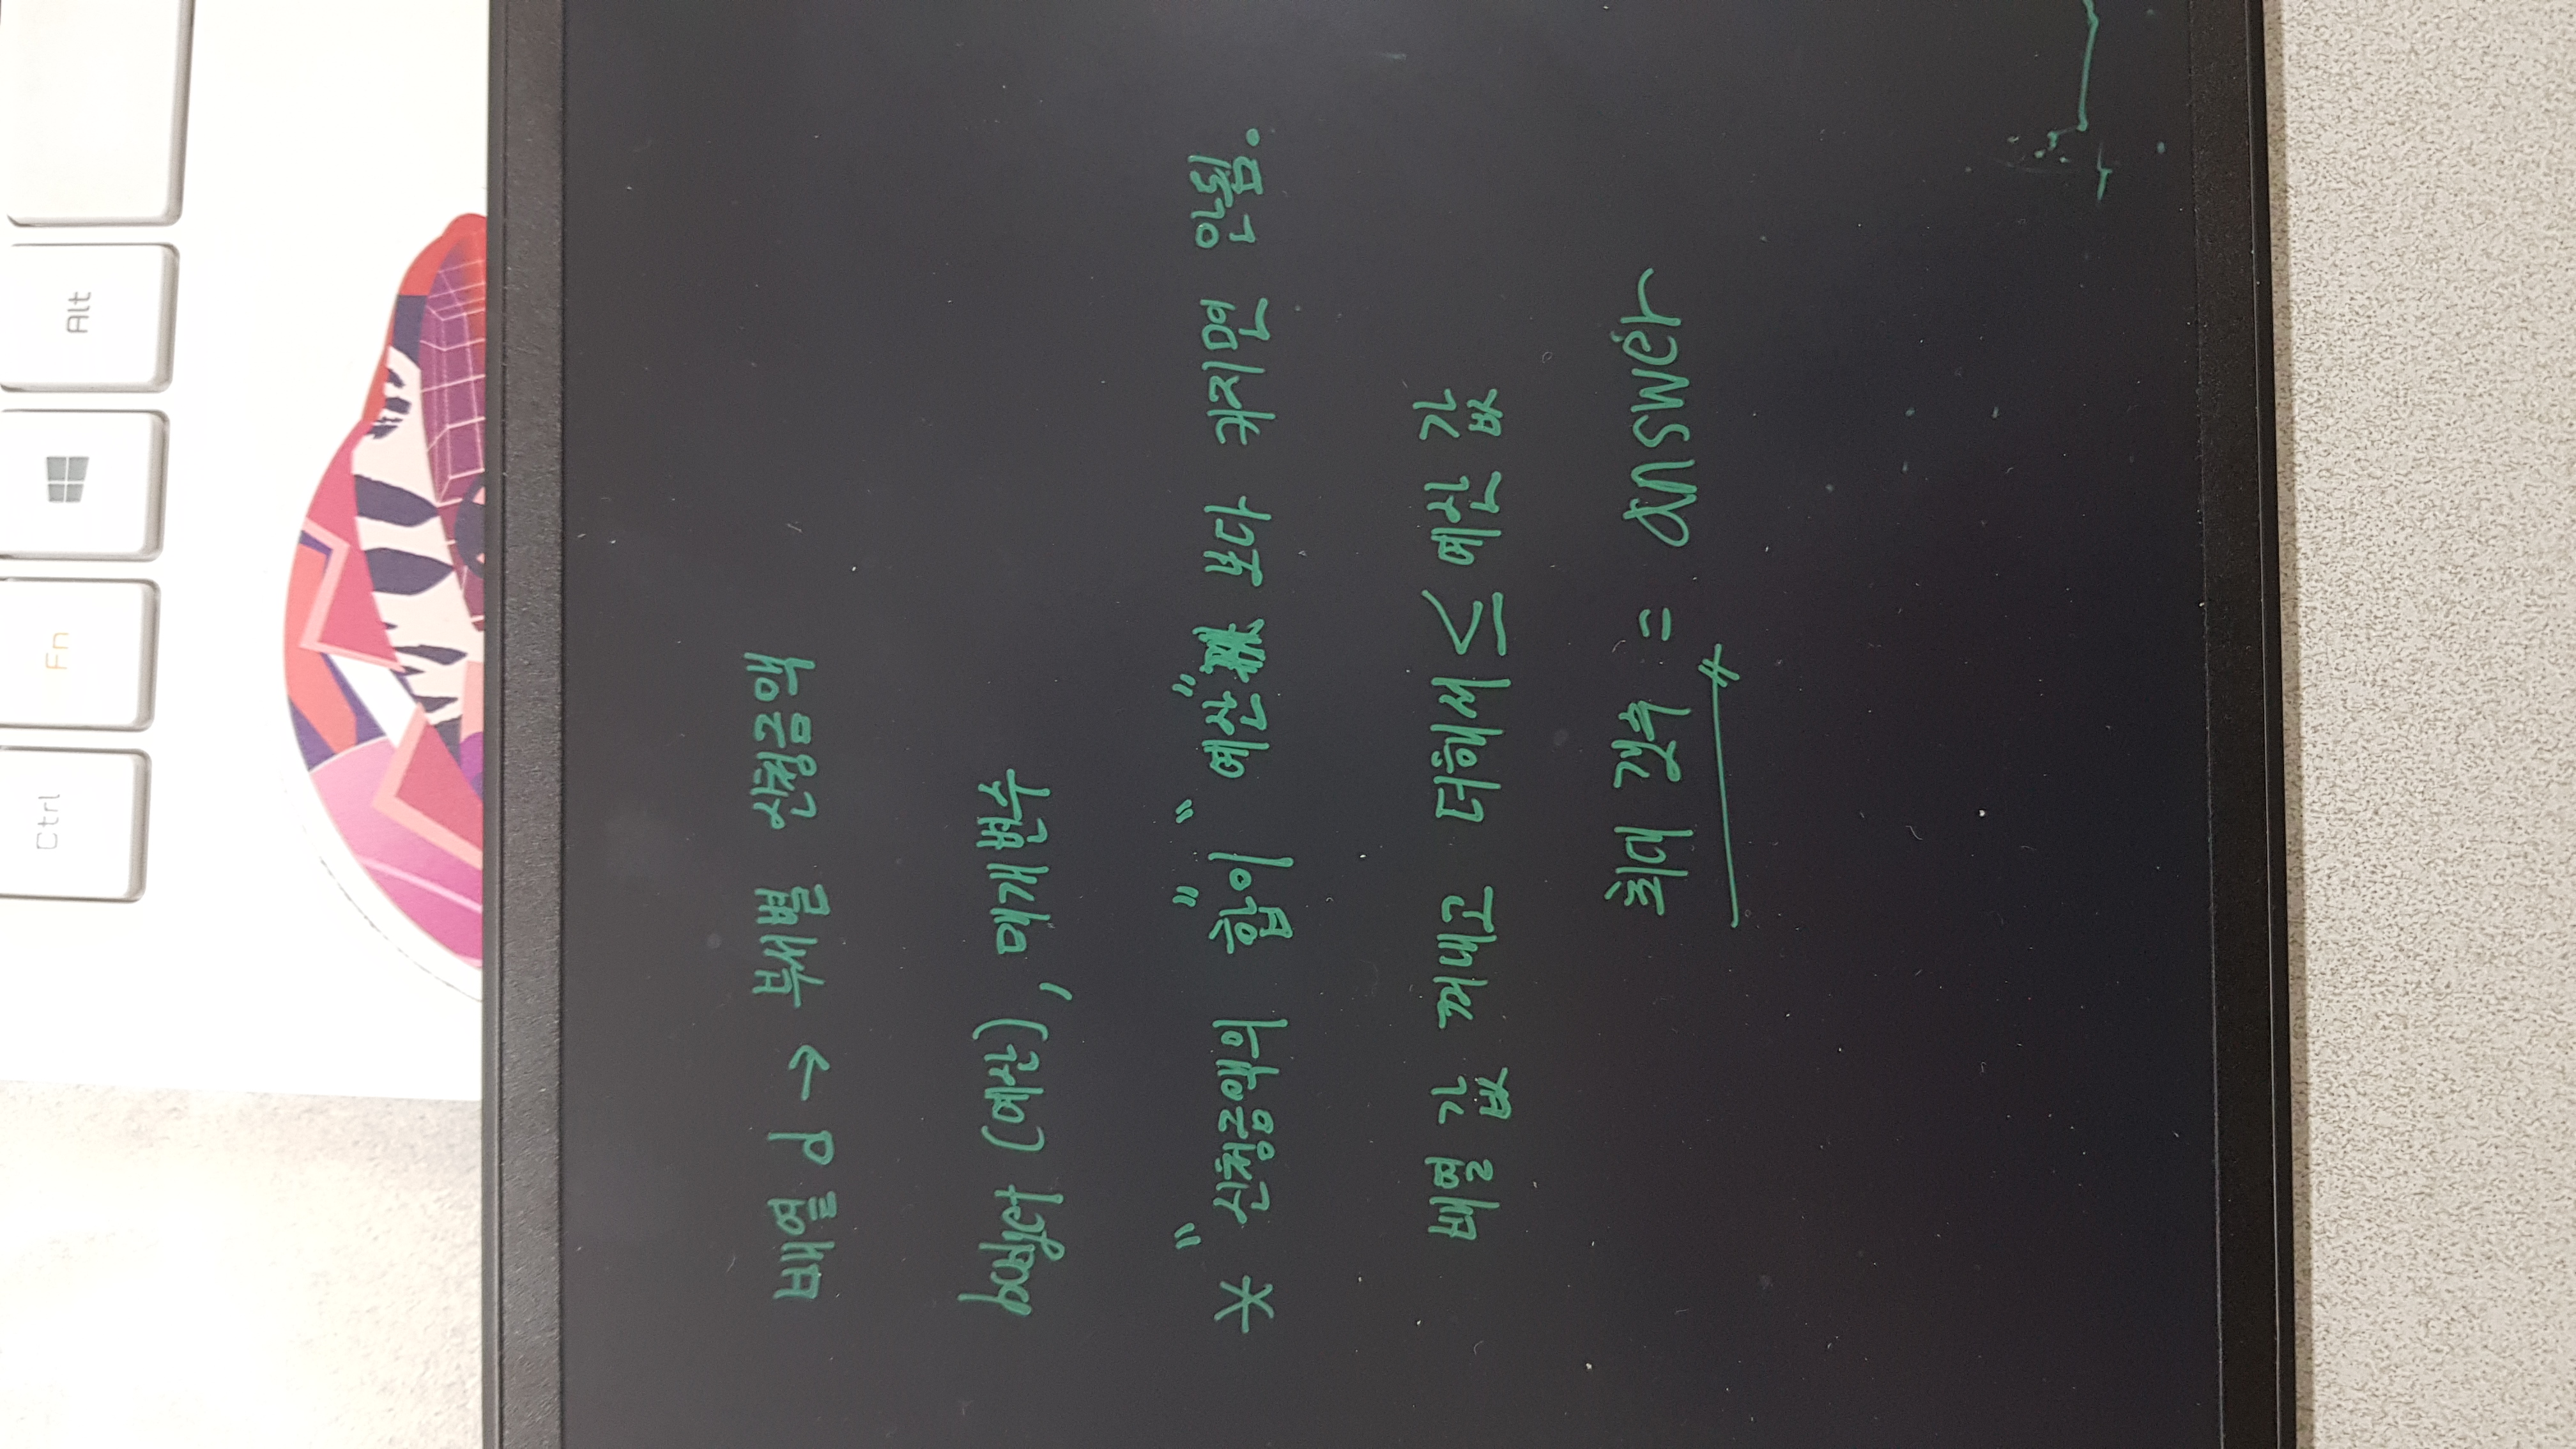 Ctrl Fn Alt
배열 d → 부서별 신청금액
budget (예산), 매개변수
* "신청금액의 합"이 "예산" 보다 커지면 안됨.
배열 값 꺼내고 더해서 ≤ 예산 값
최대 갯수 = answer